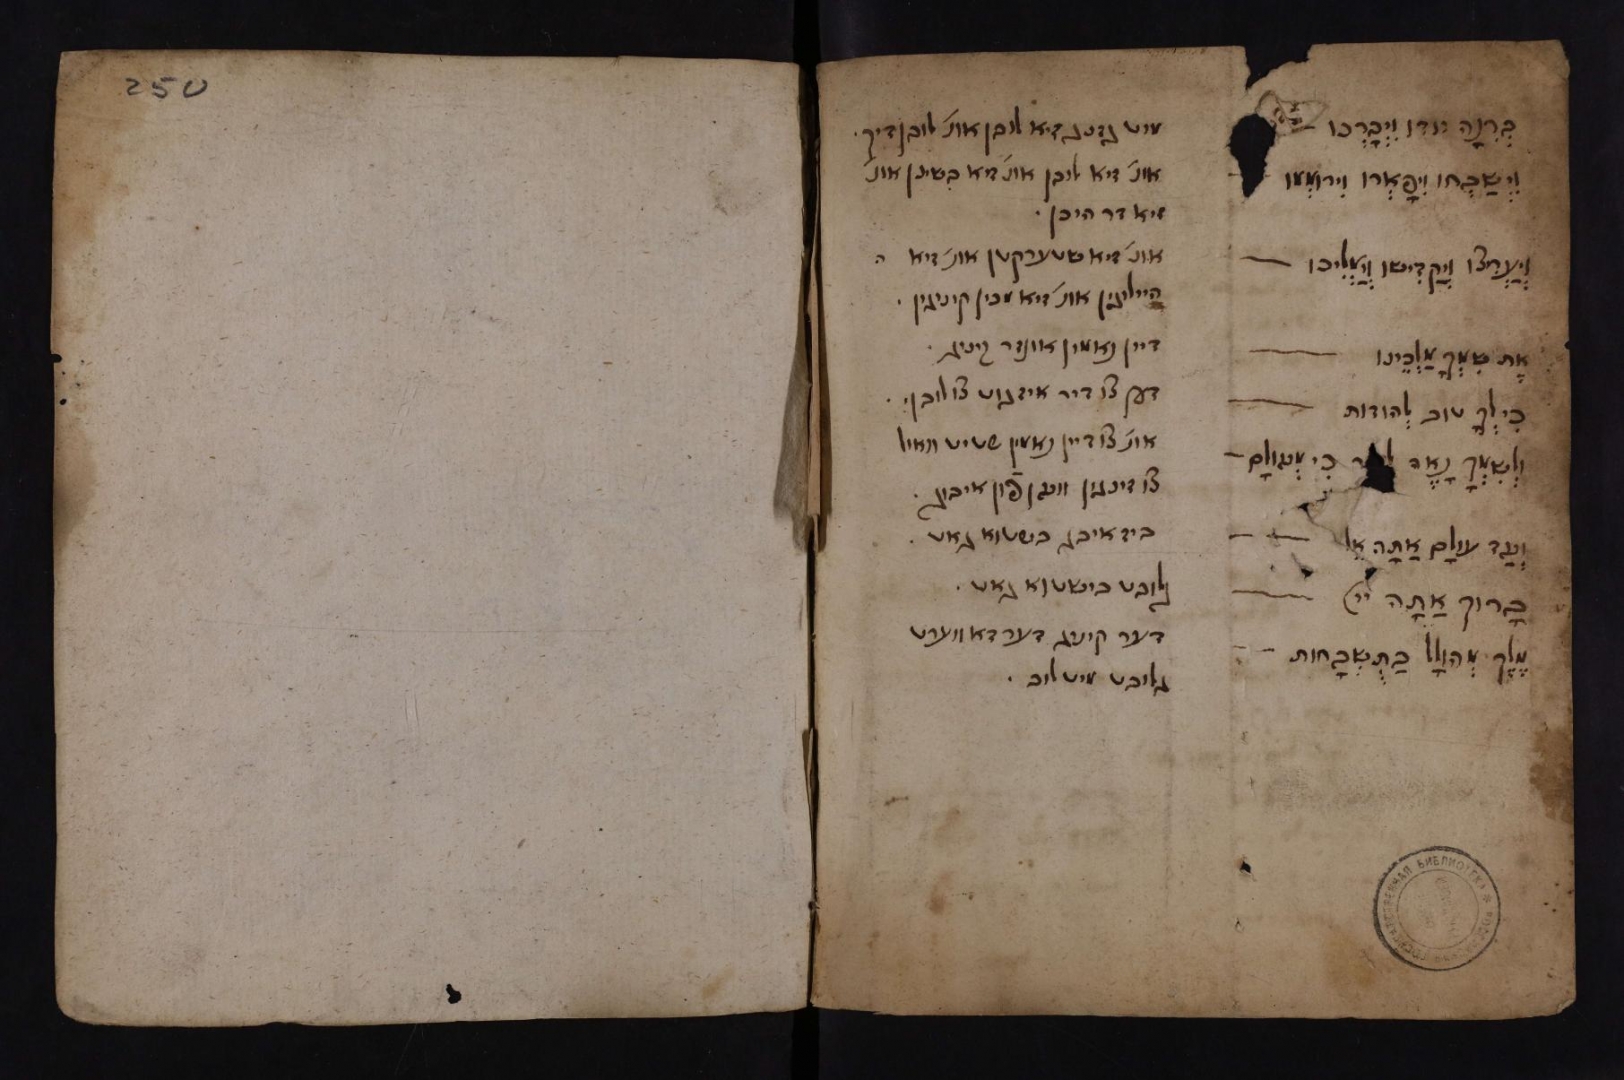 250
בְּרִנָּה יודו וִיבָרְכוּ
וִישַׁבְּחוּ וִיפָאֲרוּ וִירוֹמְמוּ
וְיַעֲרִיצוּ וְיַקְדִישׁוּ וְיַמְלִיכוּ
אֶת שִׁמְךָ מַלְכֵּינוּ
כִּי לְךָ טוב לְהודות
וּלְשִׁמְךָ נָאֶה כִּי מְעולָם
וְעַד עולָם אַתָּה אֵל
בָּרוּךְ אַתָּה יי
מֶלֶךְ מְהוּלָל בַּתִּשְׁבָּחות
מיט דיא לובן אונ' לובן דיך .
אונ' דיא ליבן אונ' דיא אונ'
דיא דר היבן .
אונ' דיא שטערקטן אונ' דיא ה
היילינגן אונ' דיא מכין קיניגין .
דיין נאמין אונזר קיניג .
דען צו דיר איז גוט צו לובן .
אונ' צו דיין נאמין שטיט וואול
צו זינגין וועגן פֿון איביג .
ביז איביג בשטוא גאט .
גלובט בישטוא גאט .
דער קיניג דער דא ווערט
גלובט מיט לוב .
ГОСУДАРСТВЕННАЯ БИБЛИОТЕКА